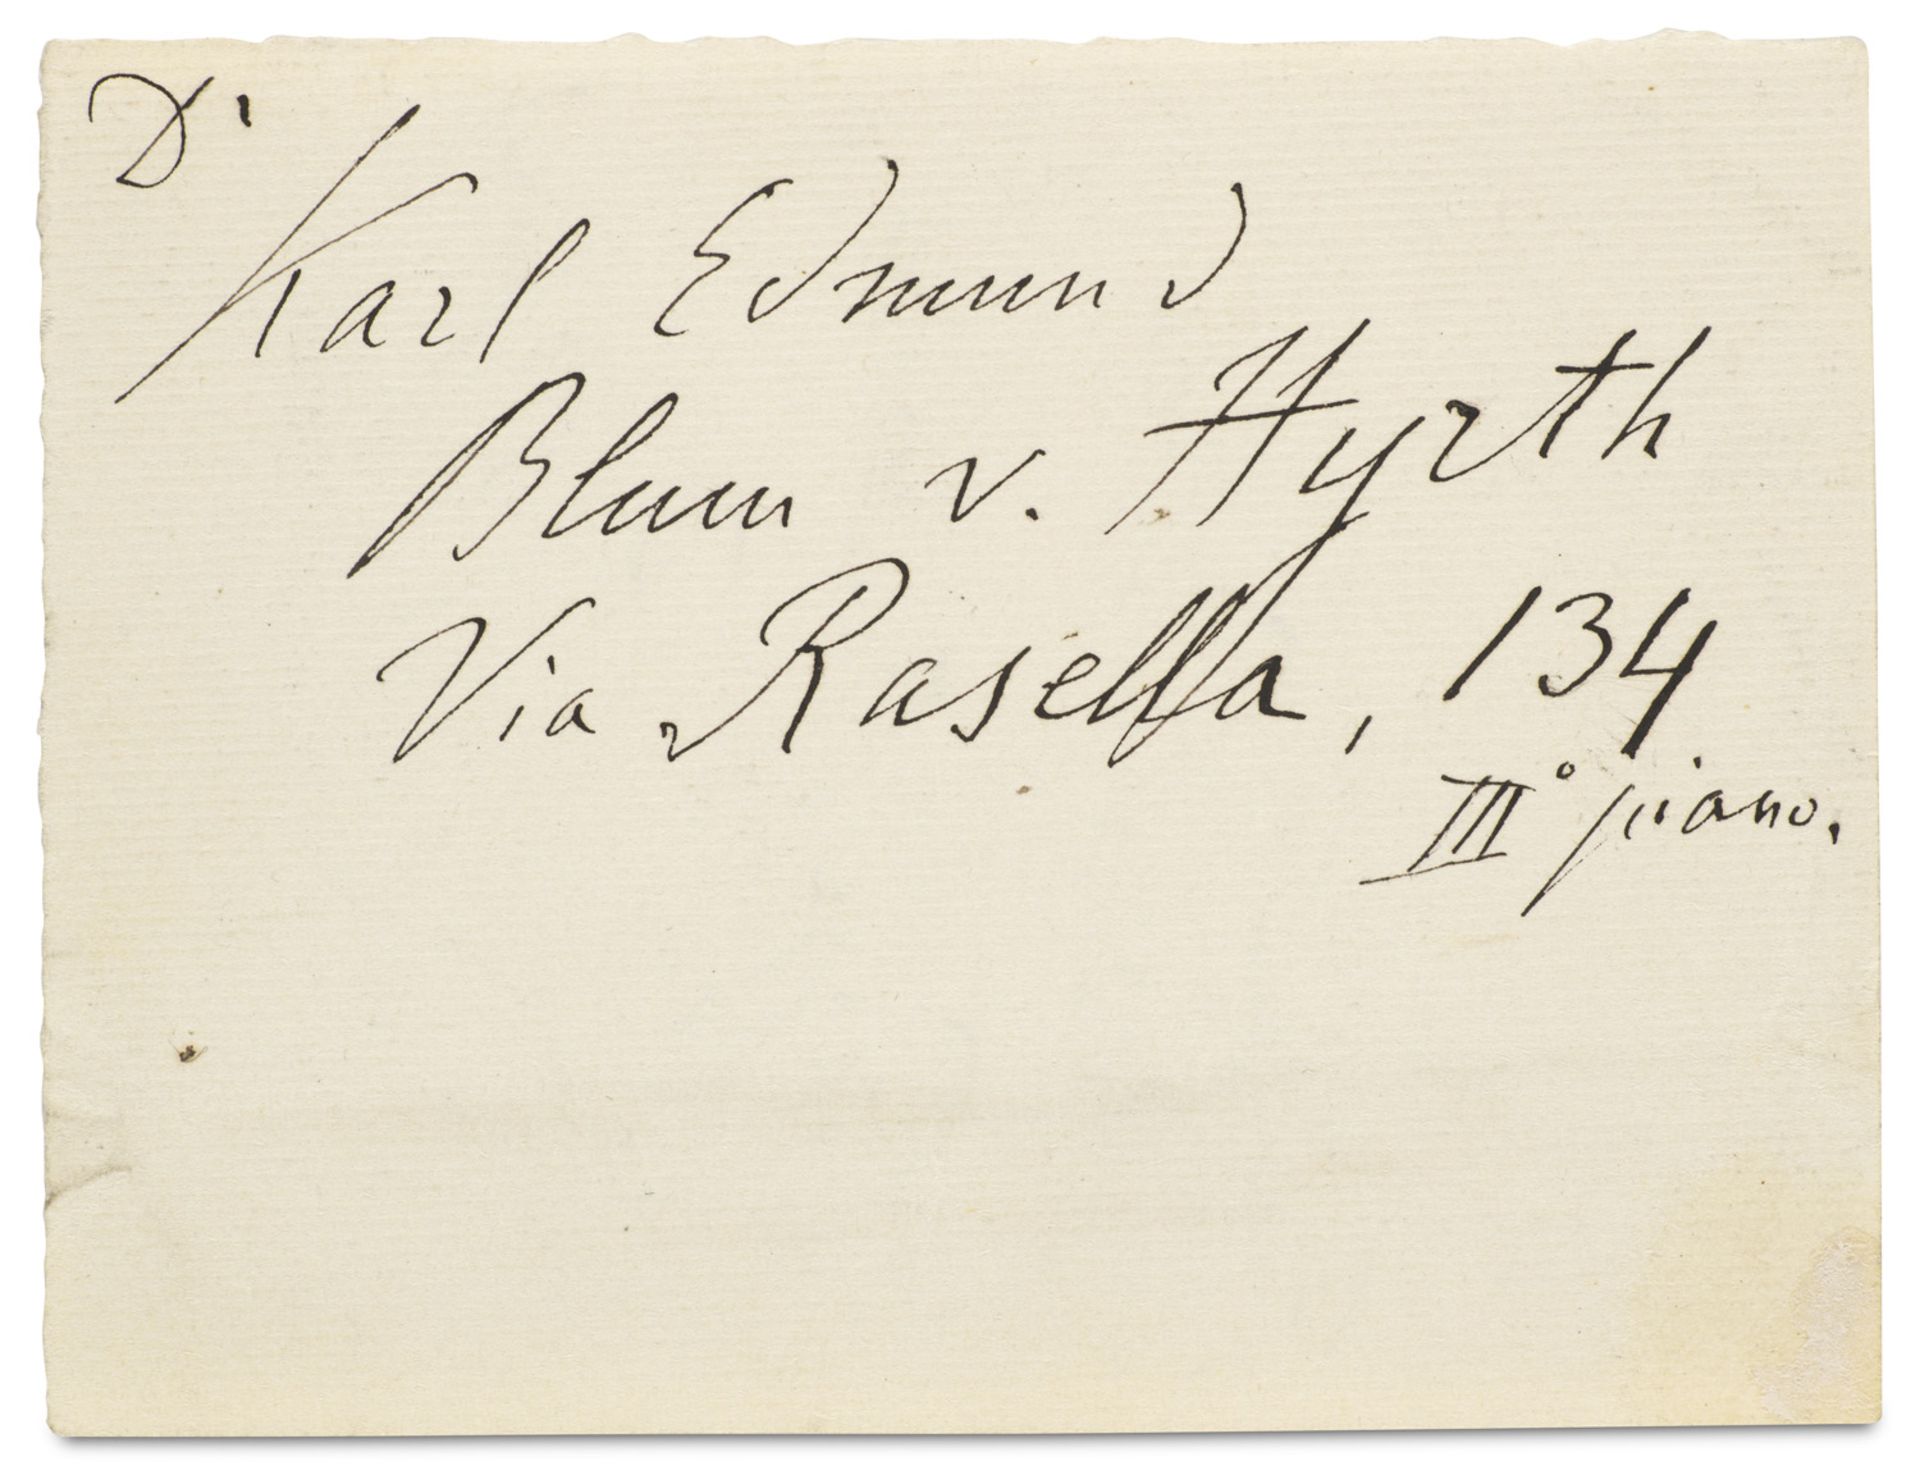 D'
Karl Edmund
Blum v. Hyrth
Via Rasella, 134
III° piano.